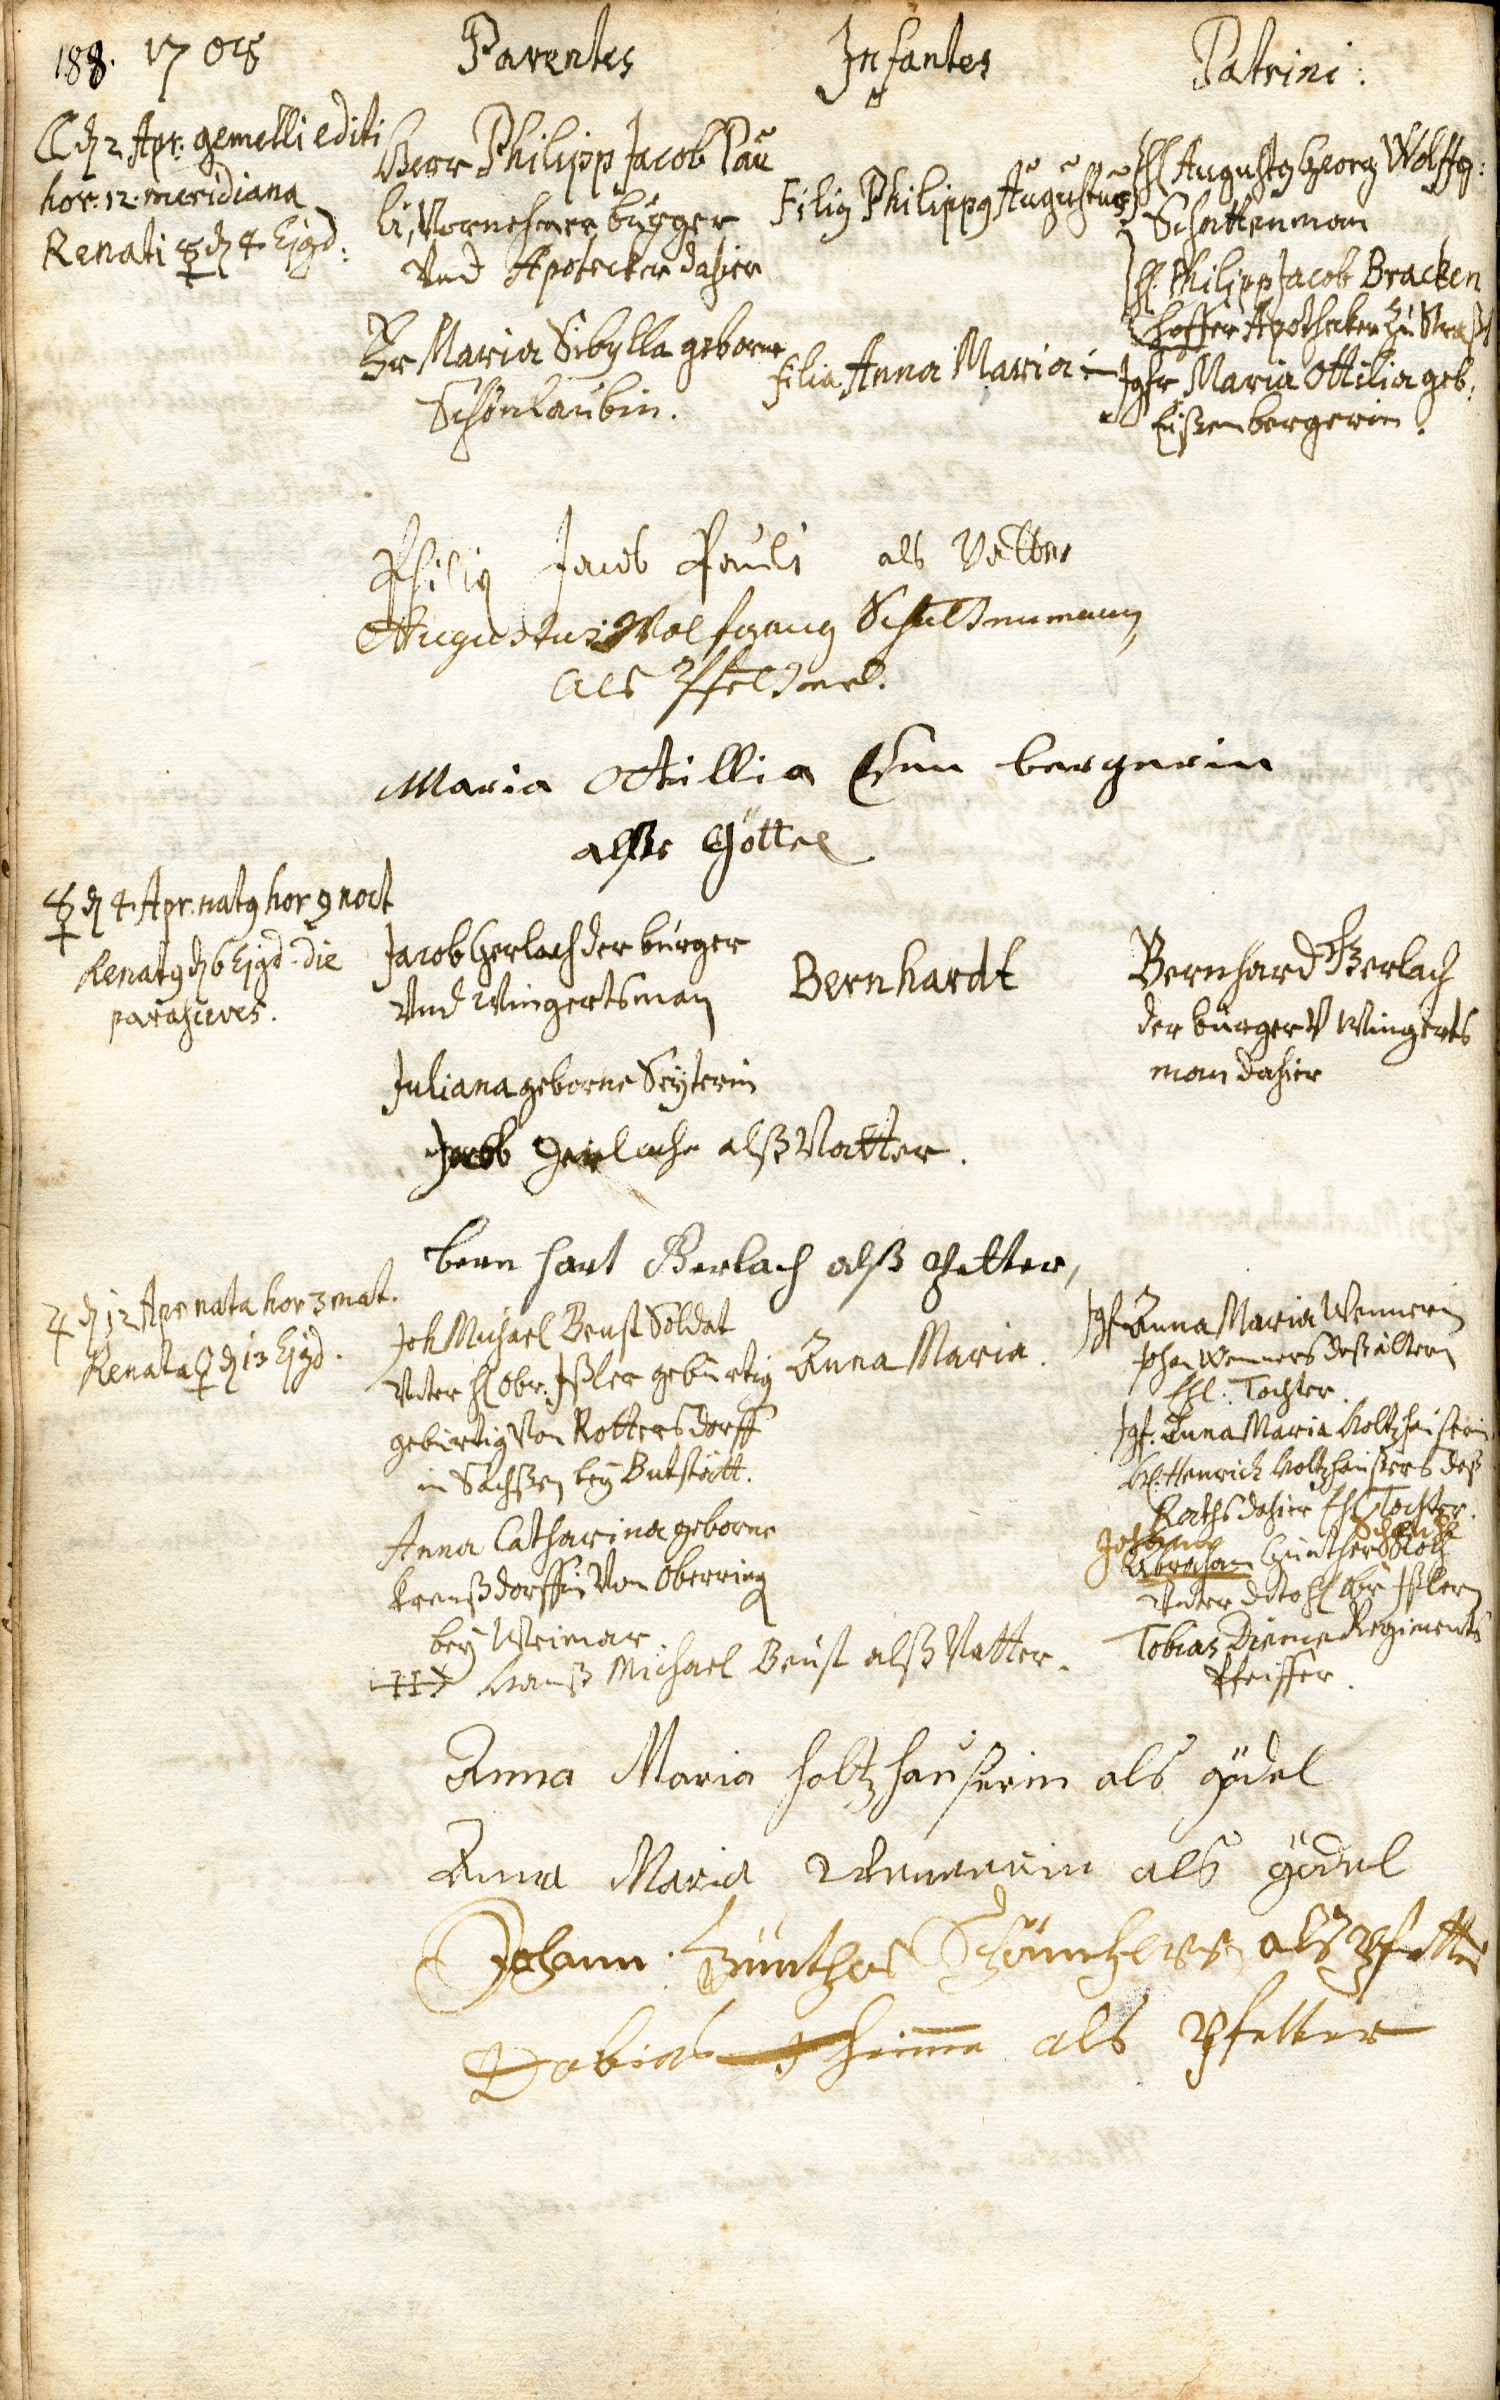 188. 1708
Parentes
Infantes
Patrini:
☾ d 2 Apr. gemelli editi
hor. 12. meridiana
Renati ☿ d 4 Ejgd:
Herr Philipp Jacob Pau
li, Vornehmer burger
Und Apotecker dahier
Fr Maria Sibylla geborne
Schönlaubin.
Filig Philippg Augustus
filia Anna Maria
H Augustg Georg Wolffg:
Schattenman
H. Philipp Jacob Bracken
hoffer Apothecker zu Straß
Jgfr Maria Ottilia geb:
Eißenbergerin.
Philip Jacob Pauli als Vatter
Augustus Wolfgang Schattenmann
als Pfetter.
Maria Ottillia bergerin
alß Göttel
☿ d 4. Apr. natg hor 9 noct
Renatg d 6 Ejgd. die
parasceves.
Jacob Gerlach der burger
Und Wingertsman
Juliana geborne Seyterin
Bernhardt
Bernhard Gerlach
der burger V Wingerts
man dahier
Jacob Gerlach alß Vatter.
bern hart Gerlach alß Petter,
♃ d 12 Apr nata hor 3 mat.
Renata ♀ d 13 Ejgd.
Joh Michael Beust Soldat
Unter H Obr. Ißler gebürtig
gebürtig Von Rottersdorff
in Sachßen bey Butstätt.
Anna Catharina geborne
Krenßdorffin Von Oberring
bey Weimar
Anna Maria.
Jgf Anna Maria Wennerin
Johan Wenners deß ältern
Ehl: Tochter.
Jgf. Anna Maria Holtzhäuserin
H. Henrich Holtzhäußers deß
Raths dahier Ehl Tochter.
Johann
Abraham Günther
Unter dito H Obr Ißlern
Tobias Dieme Regiments
Pfeiffer.
Hanß Michael Beust alß Vatter.
Anna Maria holtzhaußerin als gödel
Anna Maria Wennerin als gödel
Johann Günther als Pfetter
Dobias als Pfetter